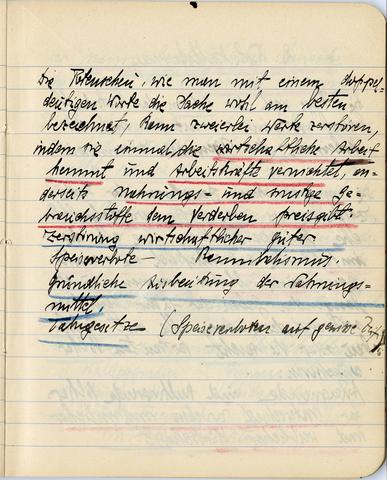 die Totenscheu, wie man mit einem doppel-
deutigen Worte die Sache wohl am besten
bezeichnet, kann zweierlei Werte zerstören,
indem sie einmal die wirtschaftliche Arbeit
hemmt und Arbeitskräfte vernichtet, an-
derseits Nahrungs- und sonstige Ge-
brauchsstoffe dem Verderben preisgibt.
Zerstörung wirtschaftlicher Güter
Speiseverbote - Kannibalismus.
Gründliche Ausbeutung der Nahrungs-
mittel.
(Speiseverboten auf gewisse